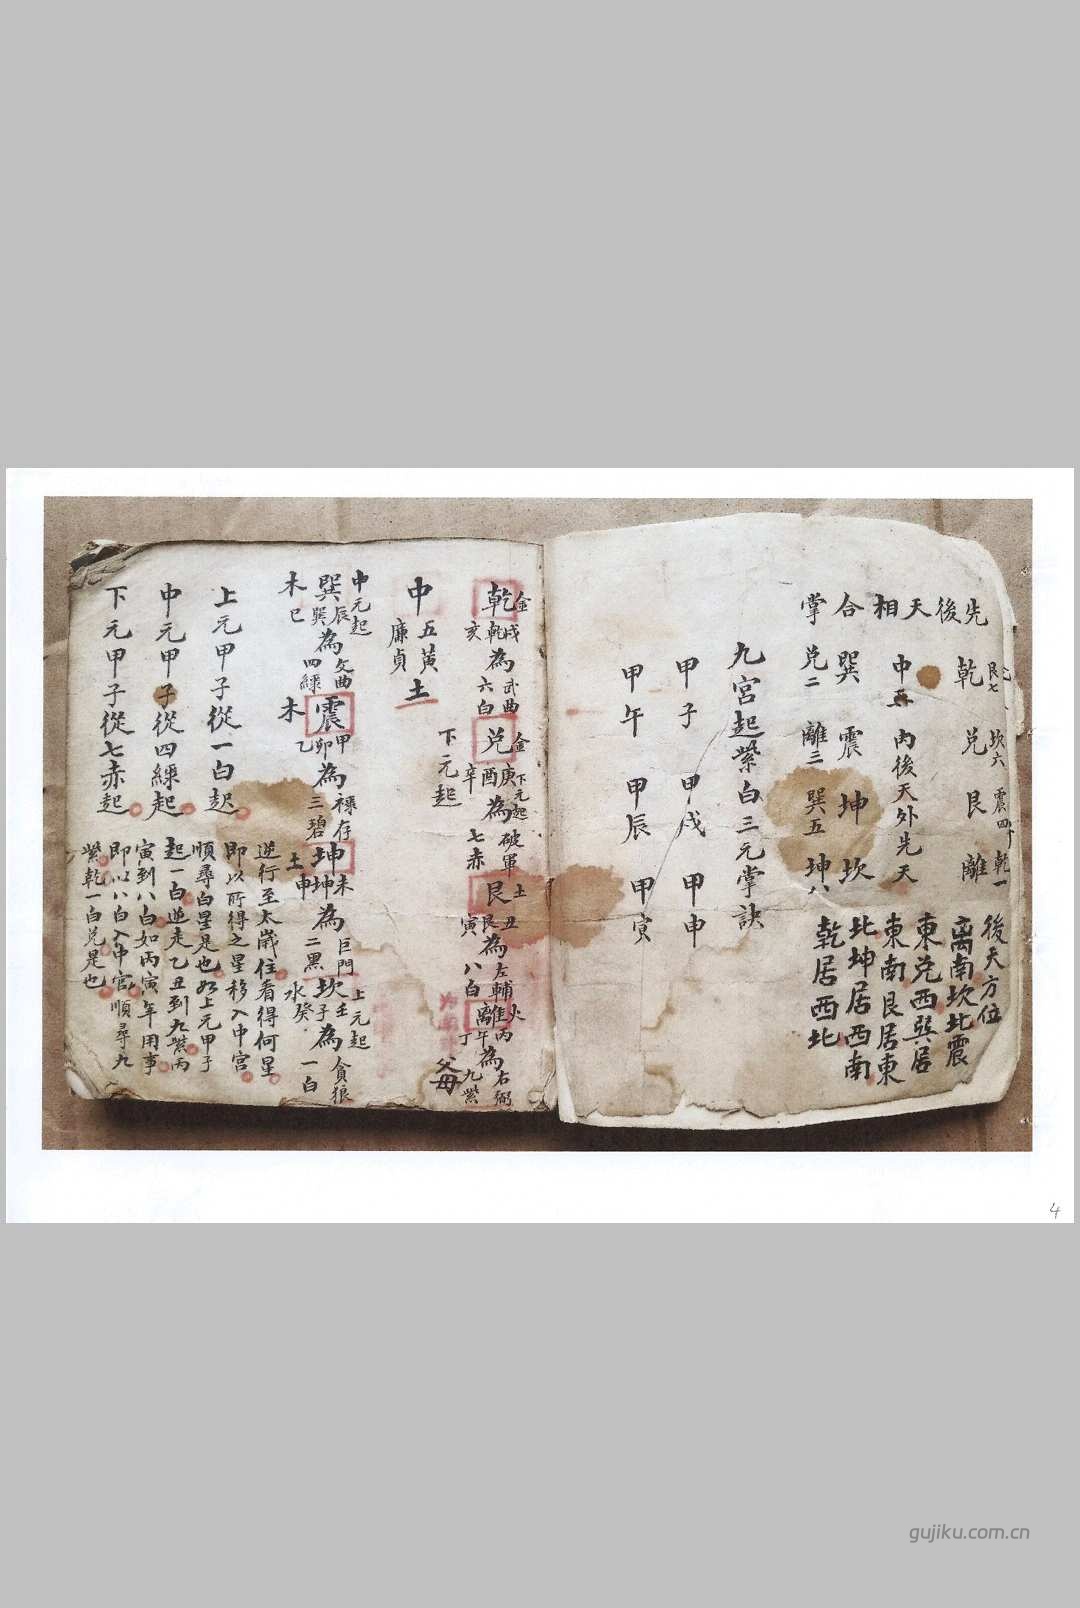 先後天相合掌
艮七 坎六 震四 乾一
乾 兌 艮 離
中五 內後天外先天
巽 震 坤 坎
兌二 離三 巽五 坤八
後天方位
离南坎北震
東兌西巽居
東南艮居東
北坤居西南
乾居西北
九宮起紫白三元掌訣
甲子 甲戌 甲申
甲午 甲辰 甲寅
金
乾 戌乾亥 為 武曲 六白
金 下元起
兌 庚酉辛 為 破軍 七赤
土
艮 丑艮寅 為 左輔 八白
火
離 丙午丁 為 右弼 九紫
下元起
父母
中 五黃 廉貞 土
中元起
巽 辰巽巳 為 文曲 四綠
木
震 甲卯乙 為 祿存 三碧
木
坤 未坤申 為 巨門 二黑
土
上元起
坎 壬子癸 為 貪狼 一白
水
上元甲子從一白起
中元甲子從四綠起
下元甲子從七赤起
逆行至太歲住看得何星
即以所得之星移入中宮
順尋白星是也如上元甲子
起一白逆走乙丑到九紫丙
寅到八白如丙寅年用事
即以八白入中宮順尋九
紫乾一白兌是也
4
gujiku.com.cn